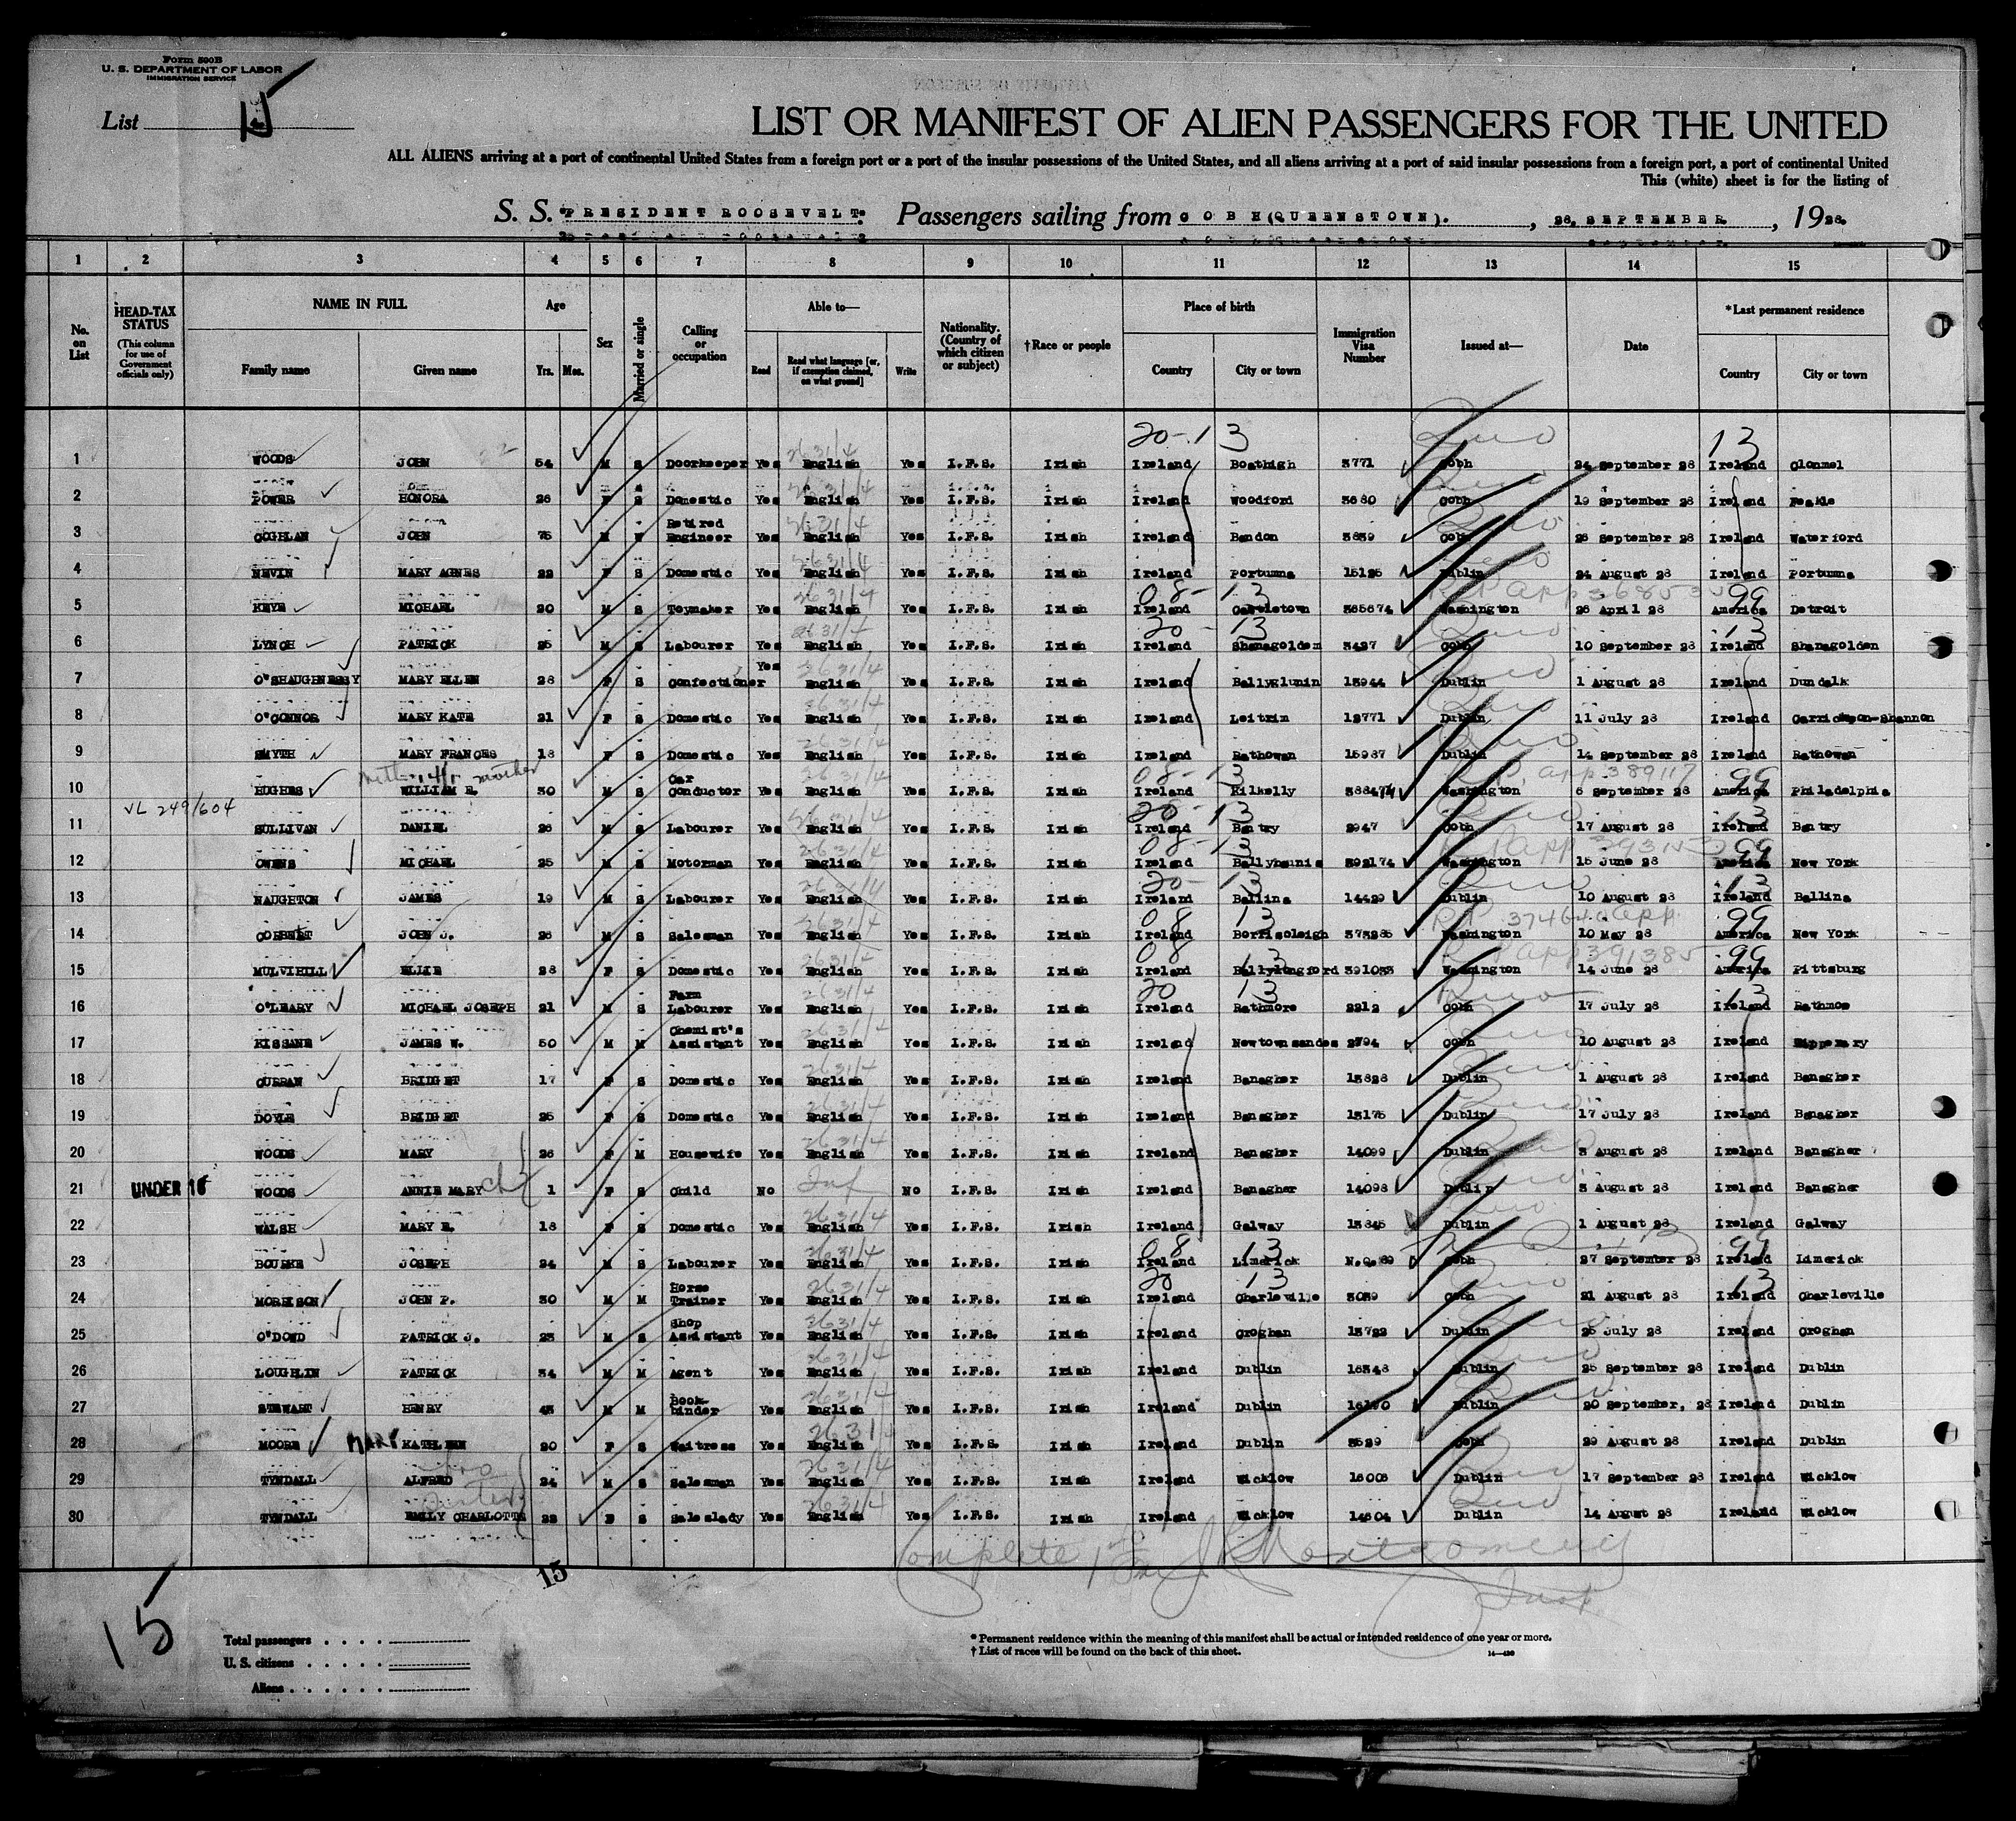 Form 500B
U. S. DEPARTMENT OF LABOR
IMMIGRATION SERVICE
List 15
LIST OR MANIFEST OF ALIEN PASSENGERS FOR THE UNITED
ALL ALIENS arriving at a port of continental United States from a foreign port or a port of the insular possessions of the United States, and all aliens arriving at a port of said insular possessions from a foreign port, a port of continental United
This (white) sheet is for the listing of
S. S. "PRESIDENT ROOSEVELT" Passengers sailing from COBH (QUEENSTOWN). , 28, SEPTEMBER , 1928.
1 2 3 4 5 6 7 8 9 10 11 12 13 14 15
No. on List
HEAD-TAX STATUS
(This column for use of Government officials only)
NAME IN FULL
Family name Given name
Age
Yrs. Mos.
Sex
Married or single
Calling or occupation
Able to—
Read Read what language [or, if exemption claimed, on what ground] Write
Nationality. (Country of which citizen or subject)
†Race or people
Place of birth
Country City or town
Immigration Visa Number
Issued at—
Date
*Last permanent residence
Country City or town
20-13 13
1 WOODS JOHN 54 M S Doorkeeper Yes English Yes I.F.S. Irish Ireland 3771 Cobh 24 September 28 Ireland Clonmel
2 POWER HONORA 26 F S Domestic Yes English Yes I.F.S. Irish Ireland Woodford 3680 Cobh 19 September 28 Ireland Feakle
3 COGHLAN JOHN 75 M W Retired Engineer Yes English Yes I.F.S. Irish Ireland Bandon 3839 Cobh 28 September 28 Ireland Waterford
4 NEVIN MARY AGNES 22 F S Domestic Yes English Yes I.F.S. Irish Ireland Portumna 15125 Dublin 24 August 28 Ireland Portumna
08-13 99
5 KEYE MICHAEL 20 M S Toymaker Yes English Yes I.F.S. Irish Ireland Castletown 365674 Washington 26 April 28 America Detroit
20-13 13
6 LYNCH PATRICK 25 M S Labourer Yes English Yes I.F.S. Irish Ireland Shanagolden 3427 Cobh 10 September 28 Ireland Shanagolden
7 O'SHAUGHNESSY MARY ELLEN 28 F S Confectioner Yes English Yes I.F.S. Irish Ireland Ballyglunin 13944 Dublin 1 August 28 Ireland Dundalk
8 O'CONNOR MARY KATE 21 F S Domestic Yes English Yes I.F.S. Irish Ireland Leitrim 12771 Dublin 11 July 28 Ireland
9 SMYTH MARY FRANCES 18 F S Domestic Yes English Yes I.F.S. Irish Ireland Rathowen 15987 Dublin 14 September 28 Ireland Rathowen
08-13 99
10 HUGHES WILLIAM E. 30 M S Car Conductor Yes English Yes I.F.S. Irish Ireland Kilkelly Washington 6 September 28 America Philadelphia
VL 249/604
20-13 13
11 SULLIVAN DANIEL 26 M S Labourer Yes English Yes I.F.S. Irish Ireland Bantry 2947 Cobh 17 August 28 Ireland Bantry
08-13 99
12 OWENS MICHAEL 25 M S Motorman Yes English Yes I.F.S. Irish Ireland Ballyhaunis 392174 Washington 15 June 28 America New York
20-13 13
13 NAUGHTON JAMES 19 M S Labourer Yes English Yes I.F.S. Irish Ireland Ballina 14429 Dublin 10 August 28 Ireland Ballina
08 13 99
14 CORBETT JOHN J. 26 M S Salesman Yes English Yes I.F.S. Irish Ireland Borrisoleigh 373286 Washington 10 May 28 America New York
08 13 99
15 MULVIHILL ELLIE 28 F S Domestic Yes English Yes I.F.S. Irish Ireland Ballylongford 391033 Washington 14 June 28 America Pittsburg
20 13 13
16 O'LEARY MICHAEL JOSEPH 21 M S Farm Labourer Yes English Yes I.F.S. Irish Ireland Rathmore 2212 Cobh 17 July 28 Ireland Rathmore
17 KISSANE JAMES W. 50 M M Chemist's Assistant Yes English Yes I.F.S. Irish Ireland Newtownsandes 2794 Cobh 10 August 28 Ireland Tipperary
18 CURRAN BRIDGET 17 F S Domestic Yes English Yes I.F.S. Irish Ireland Banagher 13828 Dublin 1 August 28 Ireland Banagher
19 DOYLE BRIDGET 25 F S Domestic Yes English Yes I.F.S. Irish Ireland Banagher 13175 Dublin 17 July 28 Ireland Banagher
20 WOODS MARY 26 F M Housewife Yes English Yes I.F.S. Irish Ireland Banagher 14099 Dublin 3 August 28 Ireland Banagher
21 UNDER 16 WOODS ANNIE MARY ch 1 F S Child No Inf No I.F.S. Irish Ireland Banagher 14098 Dublin 3 August 28 Ireland Banagher
22 WALSH MARY E. 18 F S Domestic Yes English Yes I.F.S. Irish Ireland Galway 13845 Dublin 1 August 28 Ireland Galway
08 13 99
23 BOURKE JOSEPH 24 M S Labourer Yes English Yes I.F.S. Irish Ireland Limerick Cobh 27 September 28 Ireland Limerick
20 13 13
24 MORRISON JOHN P. 30 M M Horse Trainer Yes English Yes I.F.S. Irish Ireland Charleville 3039 Cobh 21 August 28 Ireland Charleville
25 O'DOWD PATRICK J. 23 M S Shop Assistant Yes English Yes I.F.S. Irish Ireland Croghan 13722 Dublin 25 July 28 Ireland Croghan
26 LOUGHLIN PATRICK 34 M M Agent Yes English Yes I.F.S. Irish Ireland Dublin 16348 Dublin 25 September 28 Ireland Dublin
27 STEWART HENRY 43 M M Book-binder Yes English Yes I.F.S. Irish Ireland Dublin Dublin 20 September, 28 Ireland Dublin
28 MOORE MARY KATHLEEN 20 F S Waitress Yes English Yes I.F.S. Irish Ireland Dublin 3529 Cobh 29 August 28 Ireland Dublin
29 TYNDALL ALFRED 24 M S Salesman Yes English Yes I.F.S. Irish Ireland Wicklow 16008 Dublin 17 September 28 Ireland Wicklow
30 TYNDALL EMILY CHARLOTTE 22 F S Saleslady Yes English Yes I.F.S. Irish Ireland Wicklow 14604 Dublin 14 August 28 Ireland Wicklow
Complete Montgomery
Insp
15
15
Total passengers
U. S. citizens
Aliens
* Permanent residence within the meaning of this manifest shall be actual or intended residence of one year or more.
† List of races will be found on the back of this sheet.